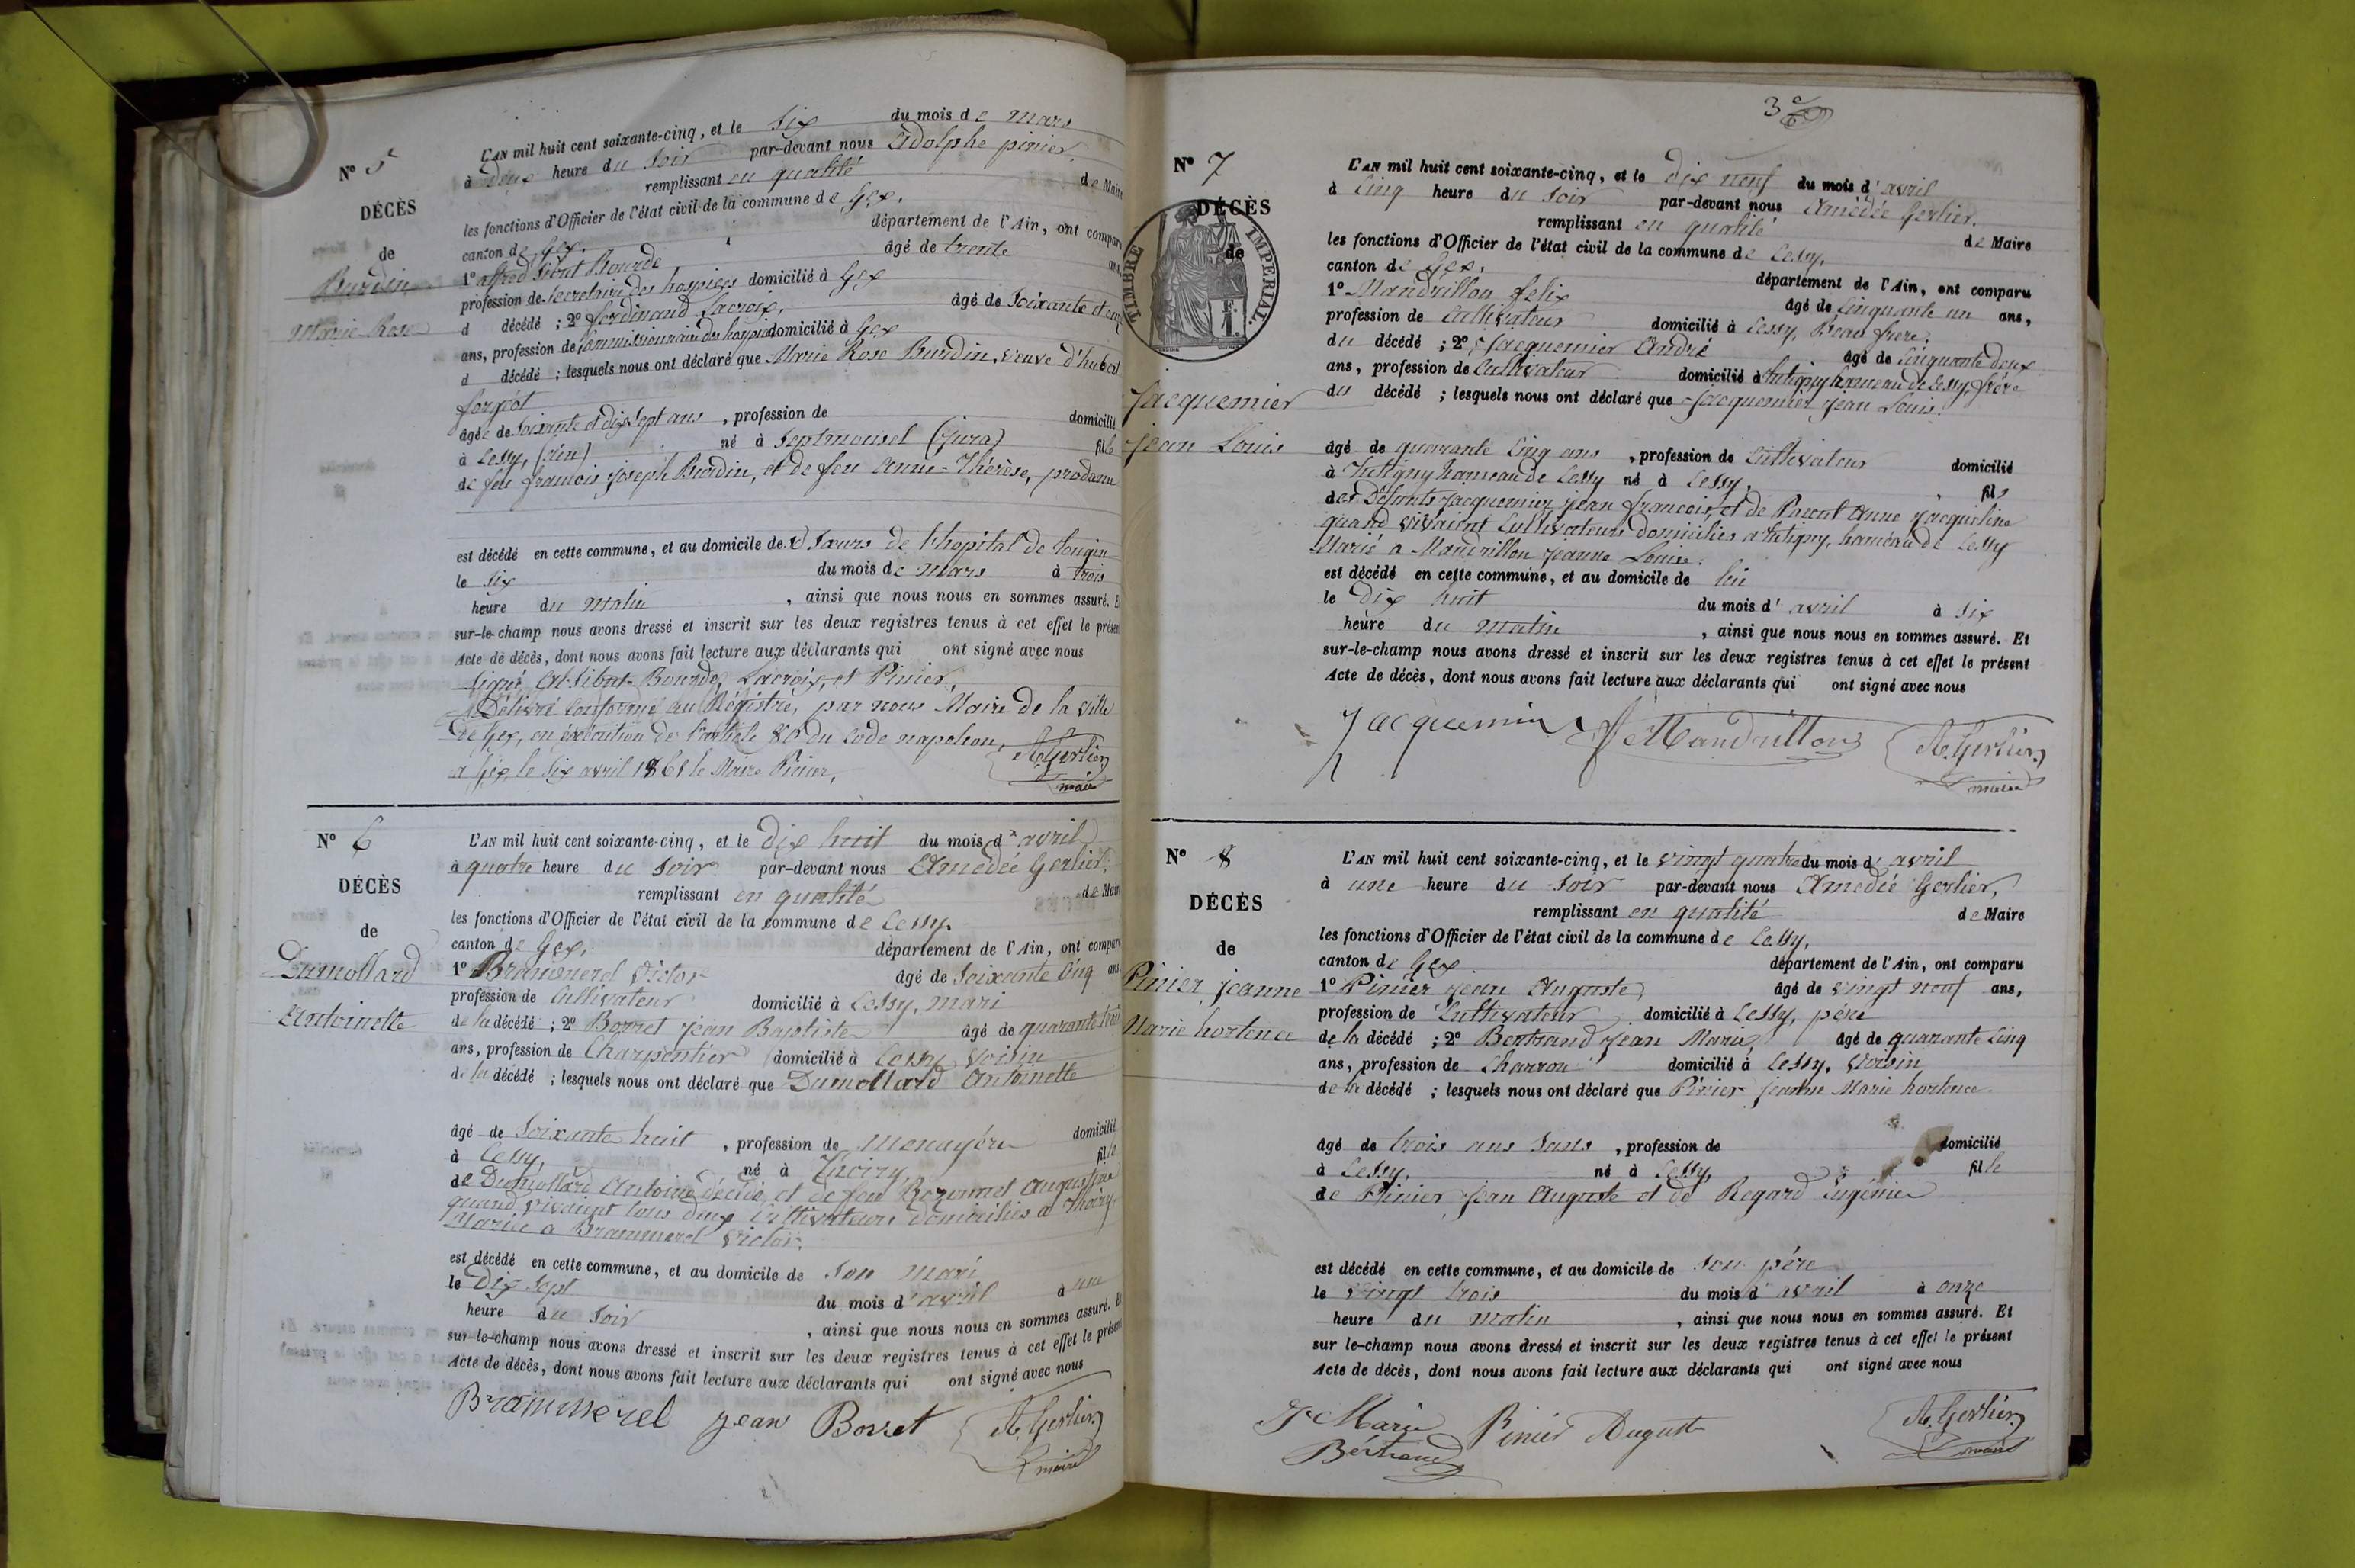 N° 5
DÉCÈS
de
Burdin
Marie Rose
L'AN mil huit cent soixante-cinq, et le six du mois de mars
à deux heure du soir par-devant nous Adolphe pinier,
remplissant en qualité de Maire
les fonctions d'Officier de l'état civil de la commune de Gex,
canton de Gex, département de l'Ain, ont comparu
1° alfred Bourde âgé de trente ans
profession de Secretaire des hospices domicilié à Gex
d décédé ; 2° ferdinand Lacroix, âgé de Soixante et
ans, profession de Commissionnaire des domicilié à Gex
d décédé ; lesquels nous ont déclaré que Marie Rose Burdin, veuve d'hubert
forget
âgée de Soixante et dix Sept ans , profession de domicilié
à Cessy, (ain) né à Septmoncel (Jura) fille
de feu françois Joseph Burdin, et de feu Anne-Thérèse,
est décédé en cette commune, et au domicile des Sœurs de l'hopital de Tougin
le Six du mois de Mars à trois
heure du Matin , ainsi que nous nous en sommes assuré. Et
sur-le-champ nous avons dressé et inscrit sur les deux registres tenus à cet effet le présent
Acte de décès, dont nous avons fait lecture aux déclarants qui ont signé avec nous
Signé Bourde, Lacroix, et Pinier,
Délivré Conforme au Régistre, par nous Maire de la ville
de Gex, en éxécution de l'article 80 du Code napoleon,
a Gex, le Six avril 1865 le Maire Pinier,
A. Gerlier
maire
N° 6
DÉCÈS
de
Dumollard
Antoinette
L'AN mil huit cent soixante-cinq, et le Dix huit du mois d'avril
à quatre heure du Soir par-devant nous Amédée Gerlier,
remplissant en qualité de Maire
les fonctions d'Officier de l'état civil de la commune de Cessy
canton de Gex, département de l'Ain, ont comparu
1° Brammerel Victor âgé de Soixante Cinq ans
profession de Cultivateur domicilié à Cessy, mari
de la décédé ; 2° Borret Jean Baptiste âgé de quarante
ans, profession de Charpentier domicilié à Cessy Voisin
de la décédé ; lesquels nous ont déclaré que Dumollard Antoinette
âgé de Soixante huit , profession de Menagére domicilié
à Cessy né à Thoiry, fille
de Dumollard Antoine décédé, et de feu Augustine
quand vivaient tous deux Cultivateurs domiciliés a Thoiry
Mariée a Brammerel Victor.
est décédé en cette commune, et au domicile de Son Mari
le Dix Sept du mois d'avril à une
heure du Soir , ainsi que nous nous en sommes assuré. Et
sur-le-champ nous avons dressé et inscrit sur les deux registres tenus à cet effet le présent
Acte de décès, dont nous avons fait lecture aux déclarants qui ont signé avec nous
Brammerel Jean Borret A. Gerlier
maire
3e
N° 7
DÉCÈS
de
TIMBRE IMPERIAL.
F.
1.
Jacquemier
Jean Louis
L'AN mil huit cent soixante-cinq, et le dix neuf du mois d'avril
à Cinq heure du Soir par-devant nous Amédée Gerlier.
remplissant en qualité de Maire
les fonctions d'Officier de l'état civil de la commune de Cessy,
canton de Gex. département de l'Ain, ont comparu
1° Mandrillon felix âgé de Cinquante un ans,
profession de Cultivateur domicilié à Cessy, Beau frere,
du décédé ; 2° Jacquemier André âgé de Cinquante deux
ans, profession de Cultivateur domicilié à hameau de Cessy, frére
du décédé ; lesquels nous ont déclaré que Jacquemier Jean Louis.
âgé de quarante Cinq ans , profession de Cultivateur domicilié
à hameau de Cessy né à Cessy, fils
des Défunts Jacquemier Jean francois, et de Parent Anne Jacqueline
quand vivaient Cultivateurs domiciliés a hameau de Cessy
Marié a Mandrillon Jeanne Louise.
est décédé en cette commune, et au domicile de lui
le Dix huit du mois d'avril à six
heure du matin , ainsi que nous nous en sommes assuré. Et
sur-le-champ nous avons dressé et inscrit sur les deux registres tenus à cet effet le présent
Acte de décès, dont nous avons fait lecture aux déclarants qui ont signé avec nous
Jacquemier Mandrillon A. Gerlier
maire
N° 8
DÉCÈS
de
Pinier, Jeanne
Marie hortence
L'AN mil huit cent soixante-cinq, et le vingt quatre du mois d'avril
à une heure du Soir par-devant nous Amedée Gerlier,
remplissant en qualité de Maire
les fonctions d'Officier de l'état civil de la commune de Cessy,
canton de Gex département de l'Ain, ont comparu
1° Pinier Jean Auguste, âgé de vingt neuf ans,
profession de Cultivateur domicilié à Cessy, père
de la décédé ; 2° Bertrand Jean Marie, âgé de quarante Cinq
ans, profession de Charron domicilié à Cessy, Voisin
de la décédé ; lesquels nous ont déclaré que Pinier Jeanne Marie hortence
âgé de trois ans Sans , profession de domicilié
à Cessy, né à Cessy, fille
de Pinier Jean Auguste et de Regard Eugénie
est décédé en cette commune, et au domicile de Son pére
le vingt trois du mois d'avril à onze
heure du matin , ainsi que nous nous en sommes assuré. Et
sur le-champ nous avons dressé et inscrit sur les deux registres tenus à cet effet le présent
Acte de décès, dont nous avons fait lecture aux déclarants qui ont signé avec nous
J. Marie Pinier Auguste A. Gerlier
Bertrand maire